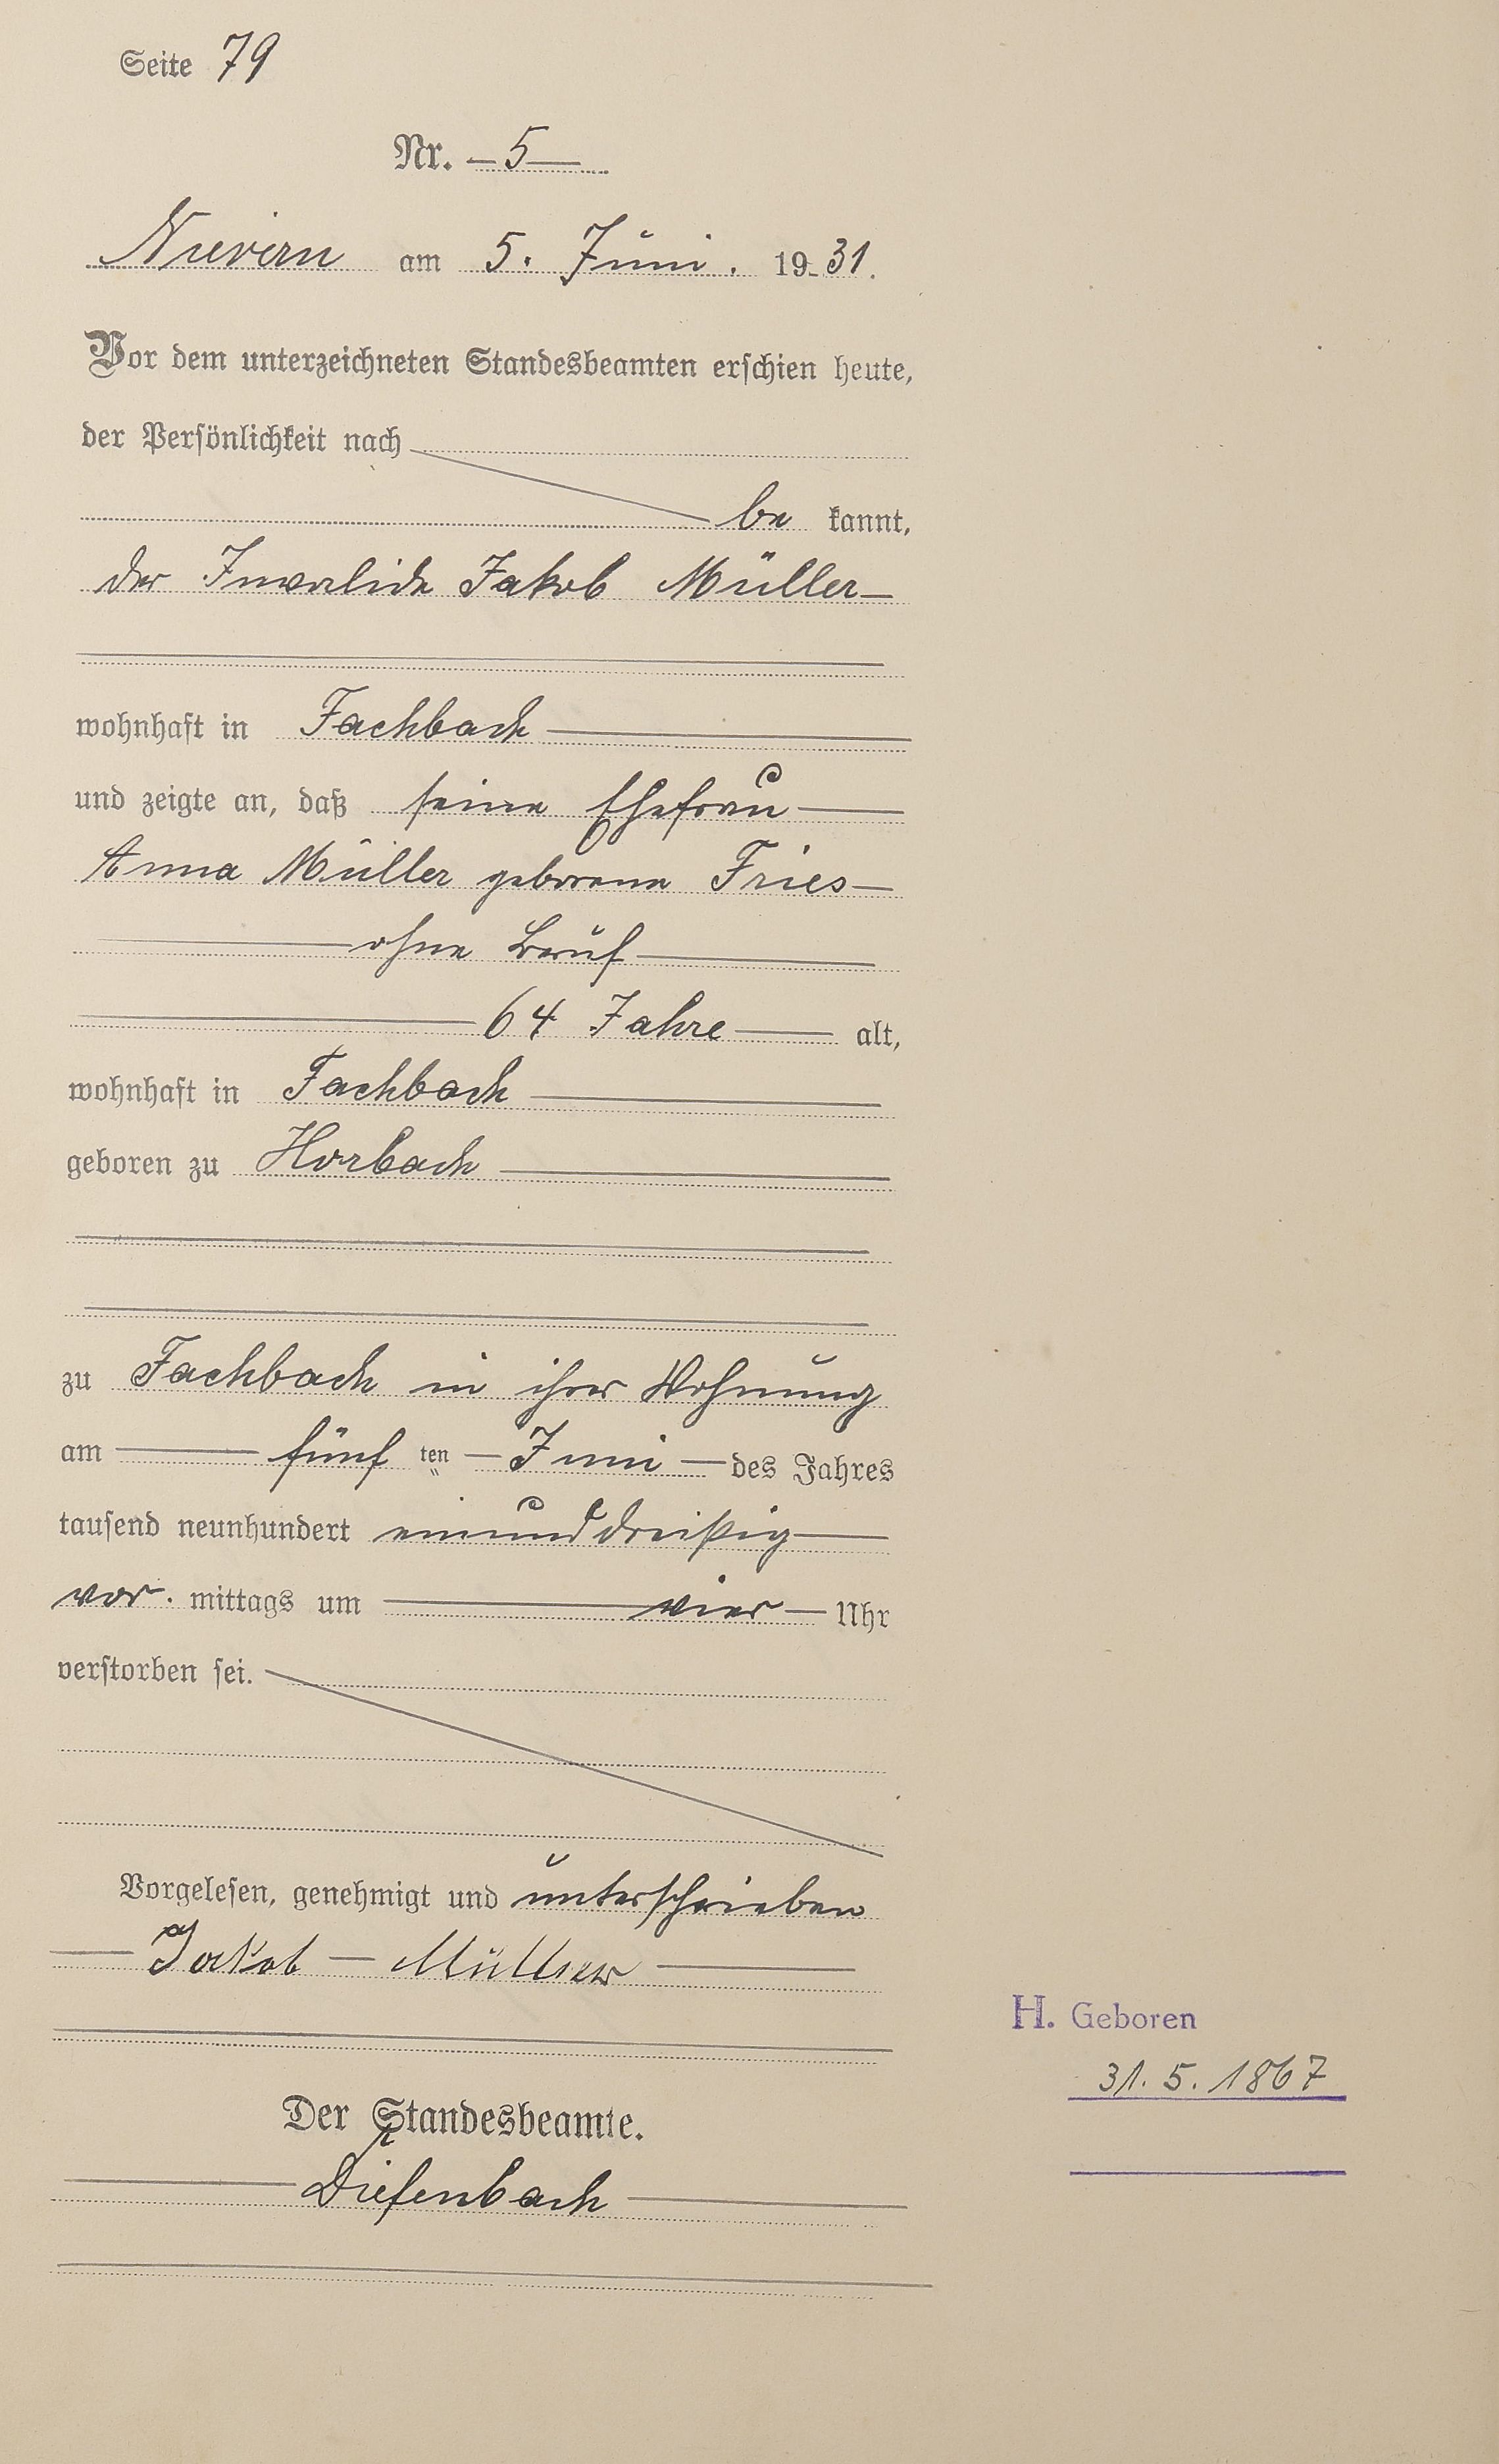 Seite 79
Nr. 5
Nievern am 5. Juni. 1931.
Vor dem unterzeichneten Standesbeamten erschien heute,
der Persönlichkeit nach
be kannt,
der Invalide Jakob Müller
wohnhaft in Fachbach
und zeigte an, daß seine Ehefrau
Anna Müller geborene Fries
ohne Beruf
64 Jahre alt,
wohnhaft in Fachbach
geboren zu Horbach
zu Fachbach in ihrer Wohnung
am fünf ten Juni des Jahres
tausend neunhundert einunddreißig
vor. mittags um vier Uhr
verstorben sei.
Vorgelesen, genehmigt und unterschrieben
Jakob Müller
H. Geboren
31. 5. 1867
Der Standesbeamte.
Diefenbach